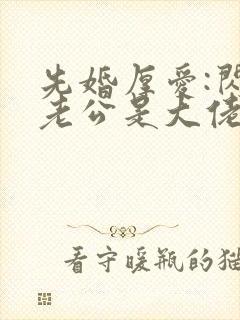 先婚厚愛:閃
老公是大佬
看守暖瓶的猫